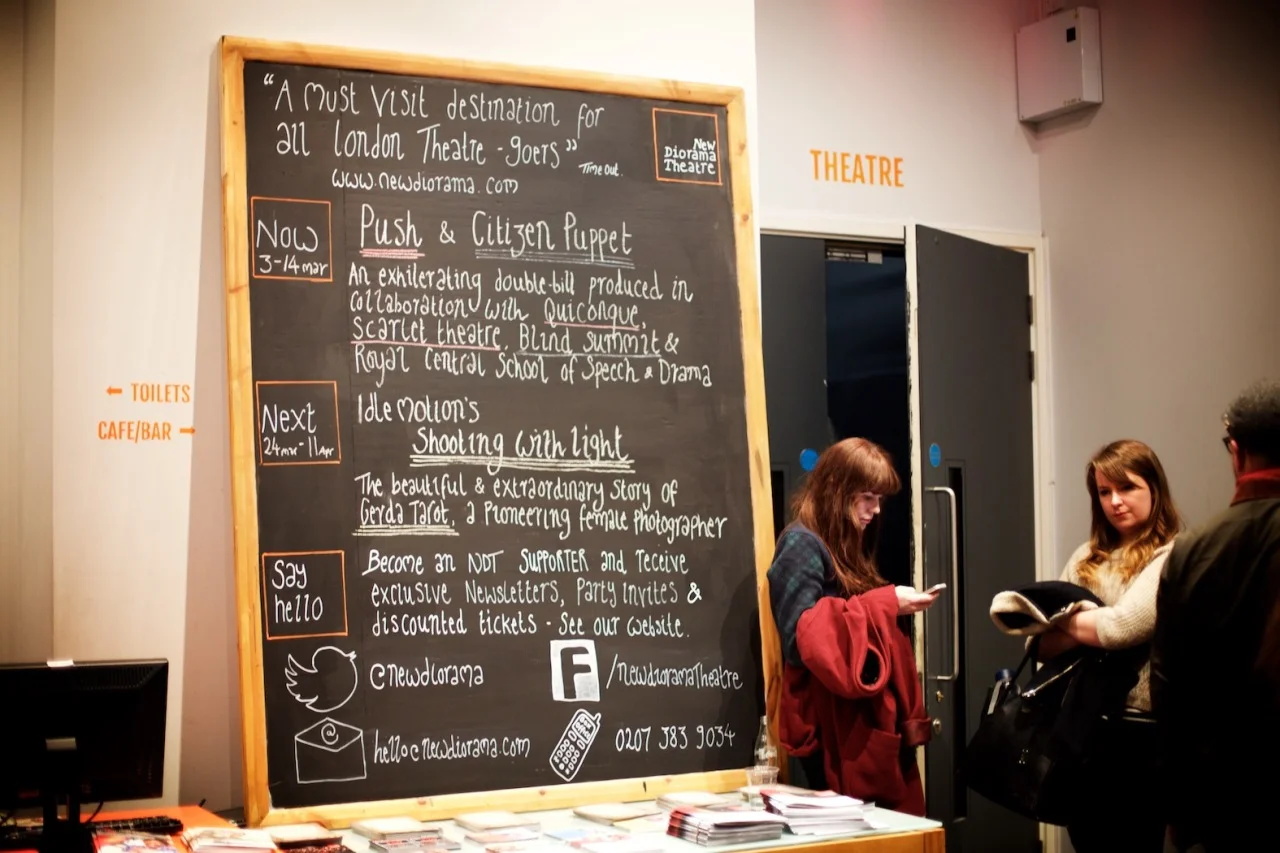 "A Must Visit destination for
all London Theatre-goers"
Time Out.
www.newdiorama.com
New
Diorama
Theatre
Now
3-14 mar
Push & Citizen Puppet
An exhilerating double-bill produced in
collaboration with Quiconque,
Scarlet theatre, Blind Summit &
Royal Central School of Speech & Drama
Next
24mar-11Apr
Idle Motion's
Shooting with light
The beautiful & extraordinary story of
Gerda Tarot, a pioneering female photographer
Say
hello
Become an NDT SUPPORTER and receive
exclusive Newsletters, Party Invites &
discounted tickets - See our website.
@newdiorama
F /newdioramaTheatre
@ hello@newdiorama.com
0207 383 9034
THEATRE
← TOILETS
CAFE/BAR →